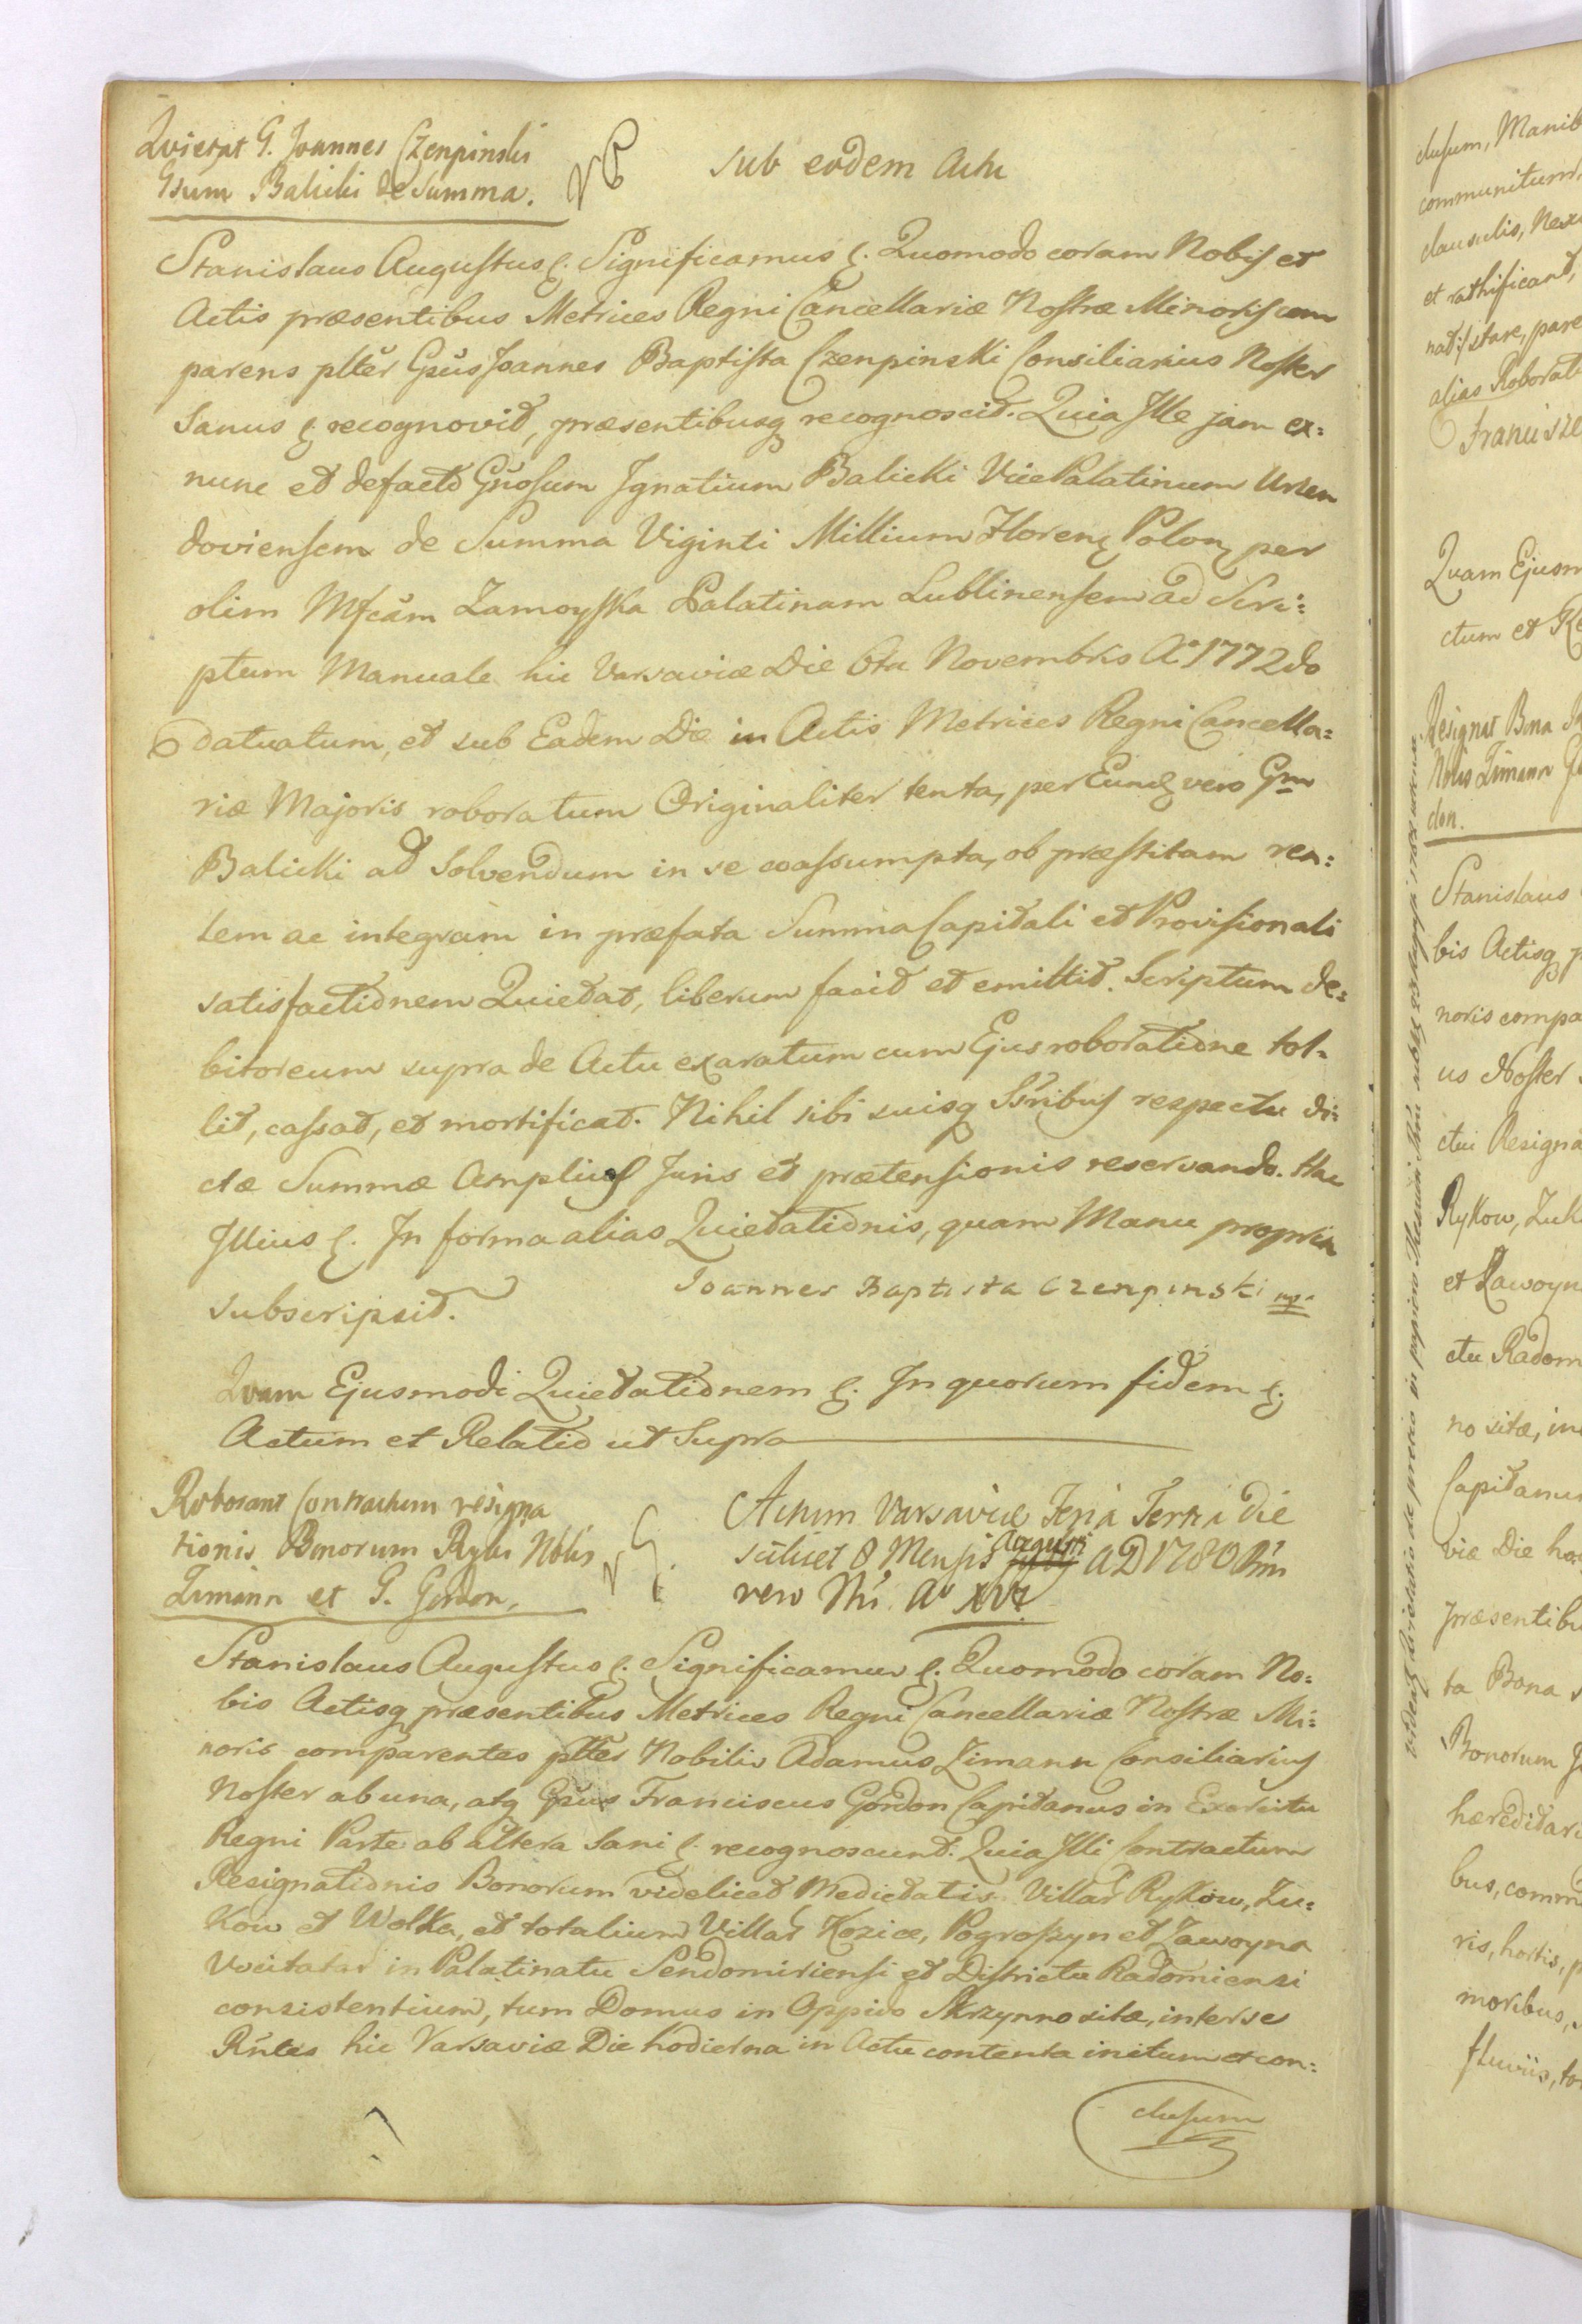 Quietat G. Joannes Czenpinski
Gsum Balicki de Summa.
sub eodem Actu
Stanislaus Augustus &. Significamus &. Quomodo coram Nobis et
Actis præsentibus Metrices Regni Cancellariæ Nostræ Minoris com
parens pltêr Gsus Joannes Baptista Czenpinski Consiliarius Noster
Sanus &. recognovit, præsentibusq recognoscit. Quia Ille jam ex=
nunc et defacto Gnosum Ignatium Balicki Vice Palatinum Urzen
doviensem de Summa Viginti Millium Floren Polon per
olim Mfcam Zamoyska Palatinam Lublinensem ad Scri=
ptum Manuale hic Varsaviæ Die 6ta Novembris Ao 1772do
datuatum, et sub Eadem Die in Actis Metrices Regni Cancella=
riæ Majoris roboratum Originaliter tenta, per Eund vero Gm
Balicki ad Solvendum in se coassumpta, ob præstitam rea=
lem ac integram in præfata Summa Capitali et Provisionali
satisfactionem Quietat, liberum facit et emittit. Scriptum de=
bitoreum supra de Actu exaratum cum Ejus roboratione tol=
lit, cassat, et mortificat. Nihil sibi suisq Ssribus respectu di=
ctæ Summæ Amplius Juris et prætensionis reservando. Hac
Illius &. In forma alias Quietationis, quam Manu propria
subscripsit.
Joannes Baptista Czenpinski mp.
Quam Ejusmodi Quietationem &. In quorum fidem &.
Actum et Relatio ut Supra
Roborant Contractum resigna
tionis Bonorum Rykow Nblis
Zimann et G. Gordon.
Actum Varsaviæ Feria Tertia die
scilicet 8 Mensis Augusti AD 1780 Rni
vero Nri Ao XVI
Stanislaus Augustus &. Significamus &. Quomodo coram No=
bis Actisq præsentibus Metrices Regni Cancellariæ Nostræ Mi=
noris comparentes pltêr Nobilis Adamus Zimann Consiliarius
Noster ab una, atq Gsus Franciscus Gordon Capitaneus in Exercitu
Regni Parte ab altera Sani &. recognoscunt. Quia Illi Contractum
Resignationis Bonorum videlicet Medietatis Villar Rykow, Zu=
kow et Wolka, et totalium Villar Kozice, Pogroszyn et Zawoyna
Vocitatar in Palatinatu Sendomiriensi et Districtu Radomiensi
consistentium, tum Domus in Oppido Skrzynno sitæ, inter se
Rntes hic Varsaviæ Die hodierna in Actu contenta initum et con=
clusum
clusum, Manib
communitum
clausulis, Nex
et rathificant,
alias Roborat
Quam Ejusm
ctum et Re
Resignat Bona
Nblis Zimann G
don.
Stanislaus
bis Actisq p
noris compa
us Noster
ctui Resigna
Rykow, Zuk
et Zawoyn
ctu Radom
no sitæ, in
Capitaneu
viæ Die ho
præsentibu
ta Bona
Bonorum
hæreditari
bus, comm
ris, hortis, p
moribus,
fluviis, to